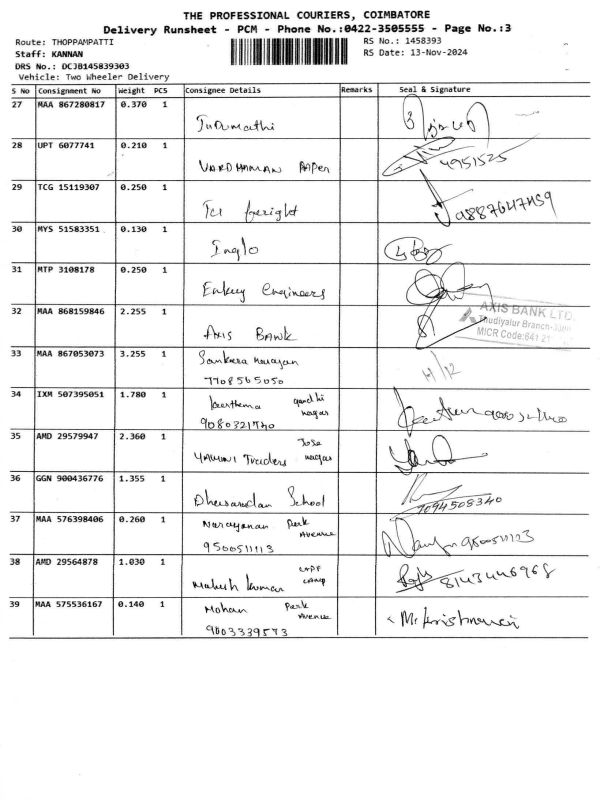 THE PROFESSIONAL COURIERS, COIMBATORE
Delivery Runsheet - PCM - Phone No.:0422-3505555 - Page No.:3
Route: THOPPAMPATTI RS No.: 1458393
Staff: KANNAN RS Date: 13-Nov-2024
DRS No.: DCJB145839303
Vehicle: Two Wheeler Delivery
S No Consignment No Weight PCS Consignee Details Remarks Seal & Signature
27 MAA 867280817 0.370 1
Indumathi
28 UPT 6077741 0.210 1
VARDHAMAN Paper 4951525
29 TCG 15119307 0.250 1
Tci freight 9887647459
30 MYS 51583351 0.130 1
Inglo
31 MTP 3108178 0.250 1
Enkey Engineers
32 MAA 868159846 2.255 1
AXIS BANK LTD.
Thudiyalur Branch
MICR Code:641 21
AXIS BANK
33 MAA 867053073 3.255 1
Sankara narayan
7708565050
34 IXM 507395051 1.780 1
Keerthema gandhi nagar
9080321740
35 AMD 29579947 2.360 1
Jose nagar
YAMUNI Traders
36 GGN 900436776 1.355 1
School
7094508340
37 MAA 576398406 0.260 1
Narayanan Park Avenue
9500511113 9500511123
38 AMD 29564878 1.030 1
CRPF camp
Mahesh Kumar 8143446968
39 MAA 575536167 0.140 1
Mohan Park Avenue
9003339573